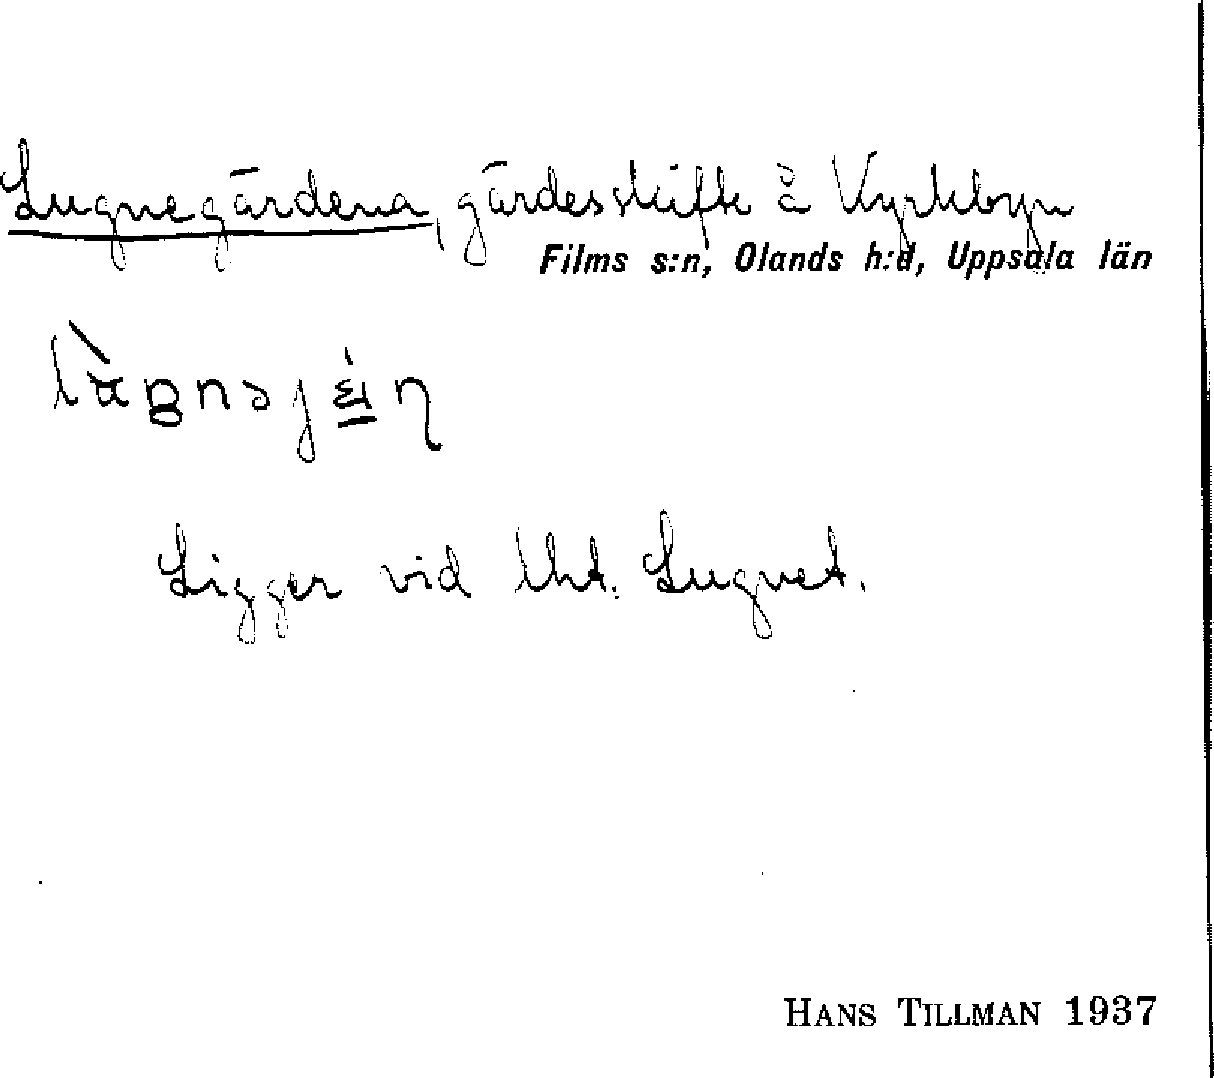 Lugnegärdena, gärdesskifte å Kyrkbyn
Films s:n, Olands h:d, Uppsala län
Ligger vid lht. Lugnet.
HANS TILLMAN 1937